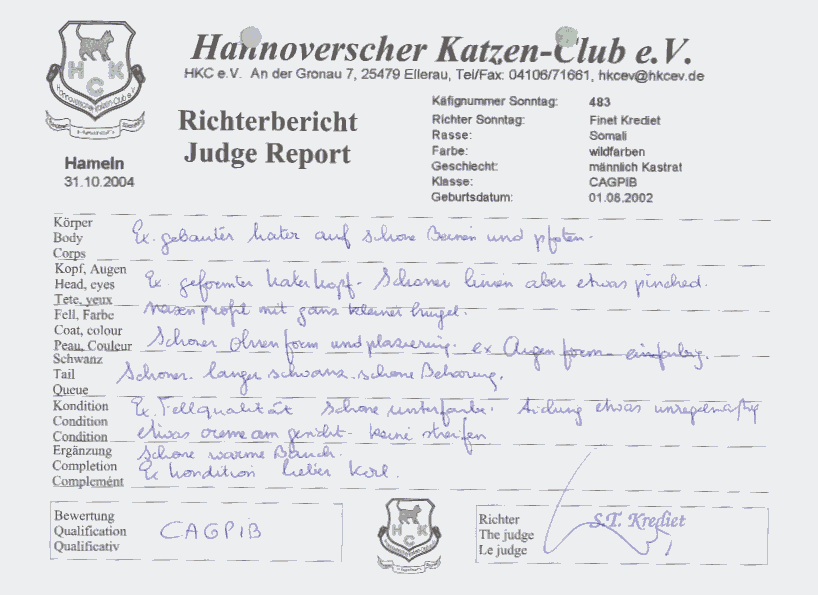 Hannoverscher Katzen-Club e.V.
HKC e.V. An der Gronau 7, 25479 Ellerau, Tel/Fax: 04106/71661, hkcev@hkcev.de
HKC
Hannoverscher Katzen-Club e.V.
Hannover
Richterbericht
Judge Report
Hameln
31.10.2004
Käfignummer Sonntag: 483
Richter Sonntag: Finet Krediet
Rasse: Somali
Farbe: wildfarben
Geschlecht: männlich Kastrat
Klasse: CAGPIB
Geburtsdatum: 01.08.2002
Körper
Body
Corps
Ex. gebauter kater auf schone Beinen und pfoten.
Kopf, Augen
Head, eyes
Tete, yeux
Ex. geformter kater kopf. Schoner linien aber etwas pinched.
nasenprofil mit ganz kleiner hugel.
Fell, Farbe
Coat, colour
Peau, Couleur
Schoner Ohrenform und plasiering. ex Augen form einfarbig.
Schwanz
Tail
Queue
Schoner langer schwanz. schone Behorung.
Kondition
Condition
Condition
Ex. Fellqualität schone unterfarbe. etwas unregelmäßig
etwas creme am gesicht. keine streifen
Ergänzung
Completion
Complément
Schone warme Bauch.
Ex kondition lieber Kerl.
Bewertung
Qualification
Qualificativ
CAGPIB
HKC
Richter
The judge
Le judge
S.T. Krediet